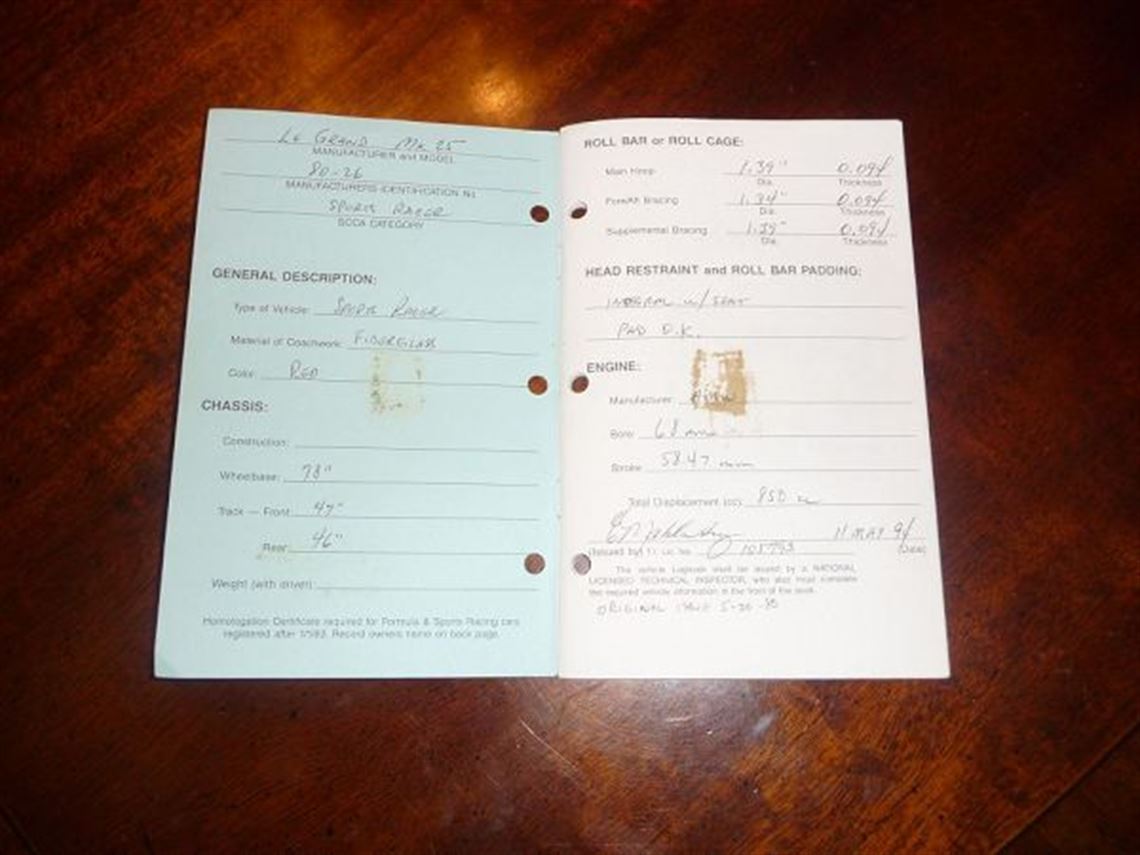 Le Grand Mk 25
MANUFACTURER and MODEL
80-26
MANUFACTURERS IDENTIFICATION No.
Sports Racer
SCCA CATEGORY
GENERAL DESCRIPTION:
Type of Vehicle: Sports Racer
Material of Coachwork: Fiberglas
Color: Red
CHASSIS:
Construction:
Wheelbase: 78"
Track — Front: 47"
Rear: 46"
Weight (with driver):
Homologation Certificate required for Formula & Sports Racing cars
registered after 1/1/83. Record owners name on back page.
ROLL BAR or ROLL CAGE:
Main Hoop 1.39" 0.094
Dia. Thickness
Fore/Aft Bracing 1.34" 0.094
Dia. Thickness
Supplemental Bracing 1.39" 0.094
Dia. Thickness
HEAD RESTRAINT and ROLL BAR PADDING:
INTEGRAL w/ SEAT
PAD O.K.
ENGINE:
Manufacturer:
Bore: 68 mm
Stroke: 58.47 mm
Total Displacement (cc): 850 cc
11 MAY 91
(Issued by) T.I. Lic. No. (Date)
The vehicle Logbook shall be issued by a NATIONAL
LICENSED TECHNICAL INSPECTOR, who also must complete
the required vehicle information in the front of the book.
ORIGINAL ISSUE 5-20-80